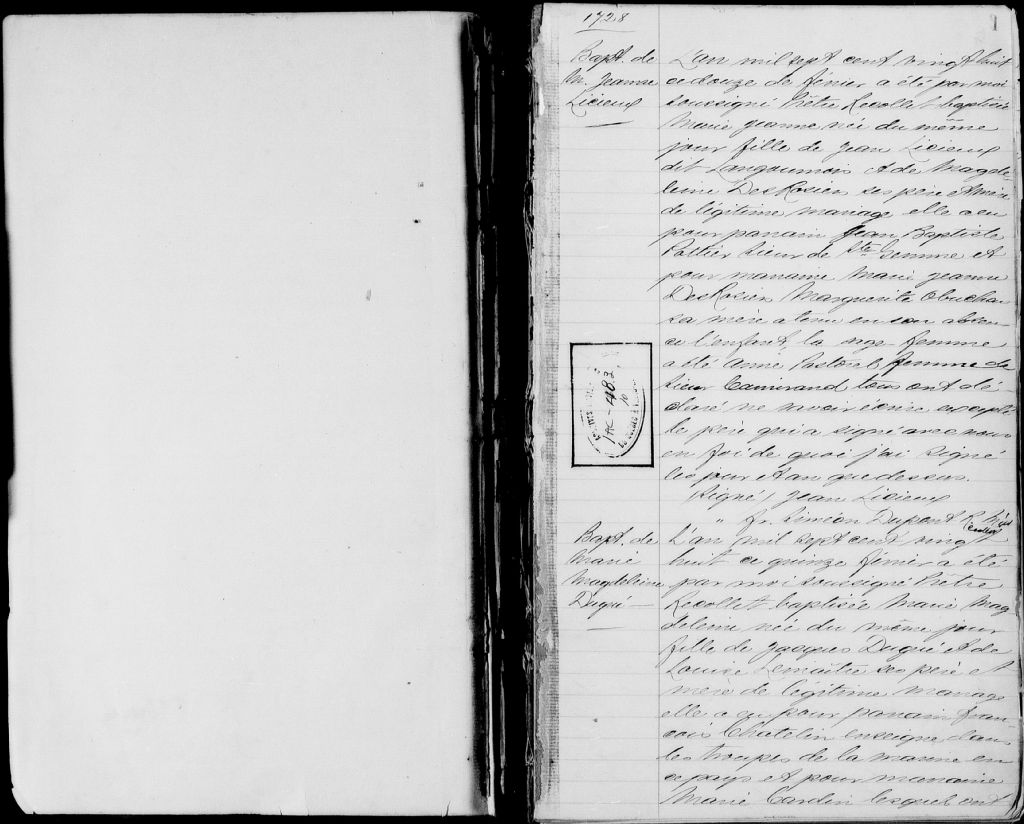 1728
1
Bapt. de
M. Jeanne
Licieux
L'an mil sept cent vingt huit
ce douze de février a été par moi
soussigné Prêtre Recollet baptisée
Marie Jeanne née du même
jour fille de Jean Licieux
dit Langoumois et de Magde
leine DesRosiers ses père et mère
de légitime mariage, elle a eu
pour parrain Jean Baptiste
Pottier Sieur de Ste Gemme et
pour marraine Marie Jeanne
DesRosiers Marguerite
sa mère a tenu en son absen
ce l'enfant, la sage femme
a été Anne femme de
Sieur Camirand tous ont dé
claré ne savoir écrire excepté
le père qui a signé avec nous
en foi de quoi j'ai signé
les jour et an que dessus.
(Signé) Jean Licieux
" fr. Siméon Dupont R. Ptre
Recollet
JAC-483
10
Bapt. de
Marie
Magdeleine
Dugré
L'an mil sept cent vingt
huit ce quinze février a été
par moi soussigné Prêtre
Recollet baptisée Marie Mag
deleine née du même jour
fille de Jacques Dugré et de
Louise Lemaître ses père et
mère de légitime mariage
elle a eu pour parrain Fran
cois Chatelin enseigne dans
les troupes de la marine en
ce pays et pour marraine
Marie Cardin lesquels ont